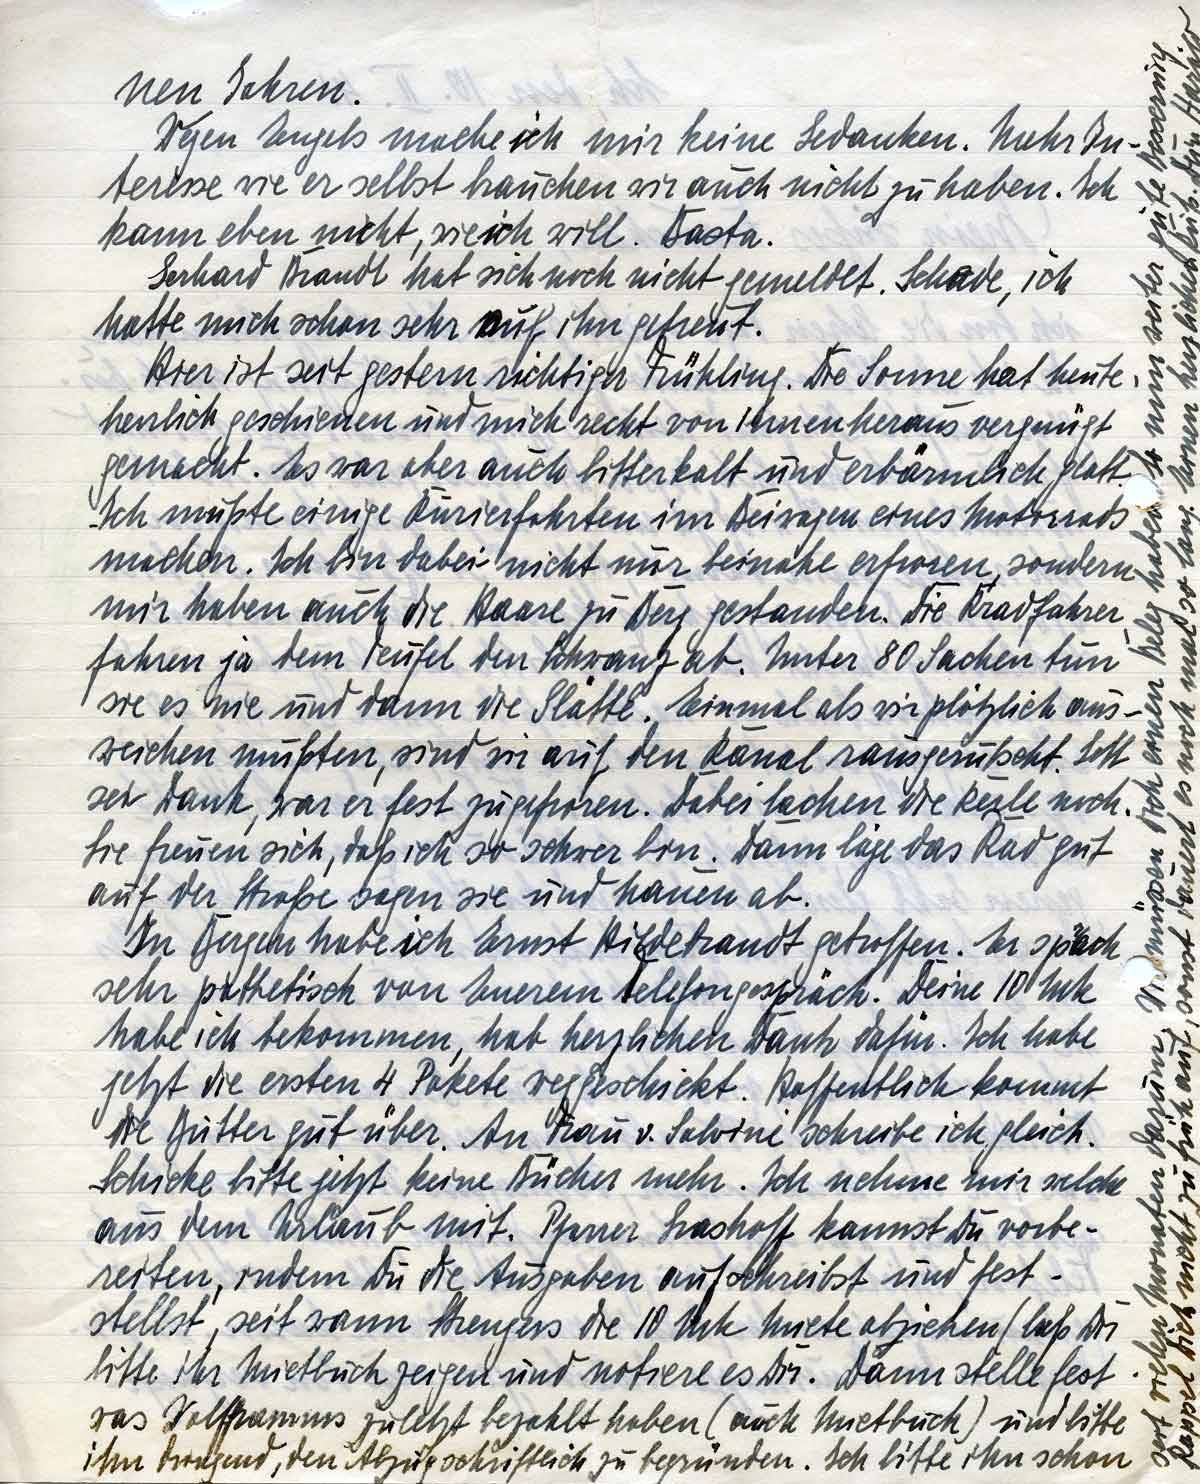 nen Jahren.
Wegen Engels mache ich mir keine Gedanken. Mehr In-
teresse wie er selbst brauchen wir auch nicht zu haben. Ich
kann eben nicht, wie ich will. Basta.
Gerhard Brandl hat sich noch nicht gemeldet. Schade, ich
hatte mich schon sehr auf ihn gefreut.
Hier ist seit gestern richtiger Frühling. Die Sonne hat heute
herrlich geschienen und mich recht von innen heraus vergnügt
gemacht. Es war aber auch bitterkalt und erbärmlich glatt.
Ich mußte einige Kurierfahrten im Beiwagen eines Motorrads
machen. Ich bin dabei nicht nur beinahe erfroren, sondern
mir haben auch die Haare zu Berg gestanden. Die Kradfahrer
fahren ja dem Teufel den Schwanz ab. Unter 80 Sachen tun
sie es nie und dann die Glätte. Einmal als wir plötzlich aus-
weichen mußten, sind wir auf den Kanal rausgerutscht. Gott
sei Dank, war er fest zugefroren. Dabei lachen die Kerle noch.
Sie freuen sich, daß ich so schwer bin. Dann läge das Rad gut
auf der Straße sagen sie und hauen ab.
In Bergen habe ich Ernst Hildebrandt getroffen. Er sprach
sehr pathetisch von Euerem Telefongespräch. Deine 10 Mk
habe ich bekommen, hab herzlichen Dank dafür. Ich habe
jetzt die ersten 4 Pakete weggeschickt. Hoffentlich kommt
die Butter gut über. An Frau v. Salvini schreibe ich gleich.
Schicke bitte jetzt keine Bücher mehr. Ich nehme mir welche
aus dem Urlaub mit. Pfarrer Grashoff kannst Du vorbe-
reiten, indem Du die Ausgaben aufschreibst und fest-
stellst, seit wann Strengers die 10 Mk Miete abziehen (laß Dir
bitte ihr Mietbuch zeigen und notiere es Dir. Dann stelle fest
was Wolframms zuletzt bezahlt haben (auch Mietbuch) und bitte
ihn dringend, den Abzug schriftlich zu begründen. Ich bitte ihn schon
seit vielen Monaten darum. Wir müssen doch einen Beleg haben. So nun weiter gute Besserung
Rappel Dich nicht zu früh auf, sonst dauert es noch mal so lang.